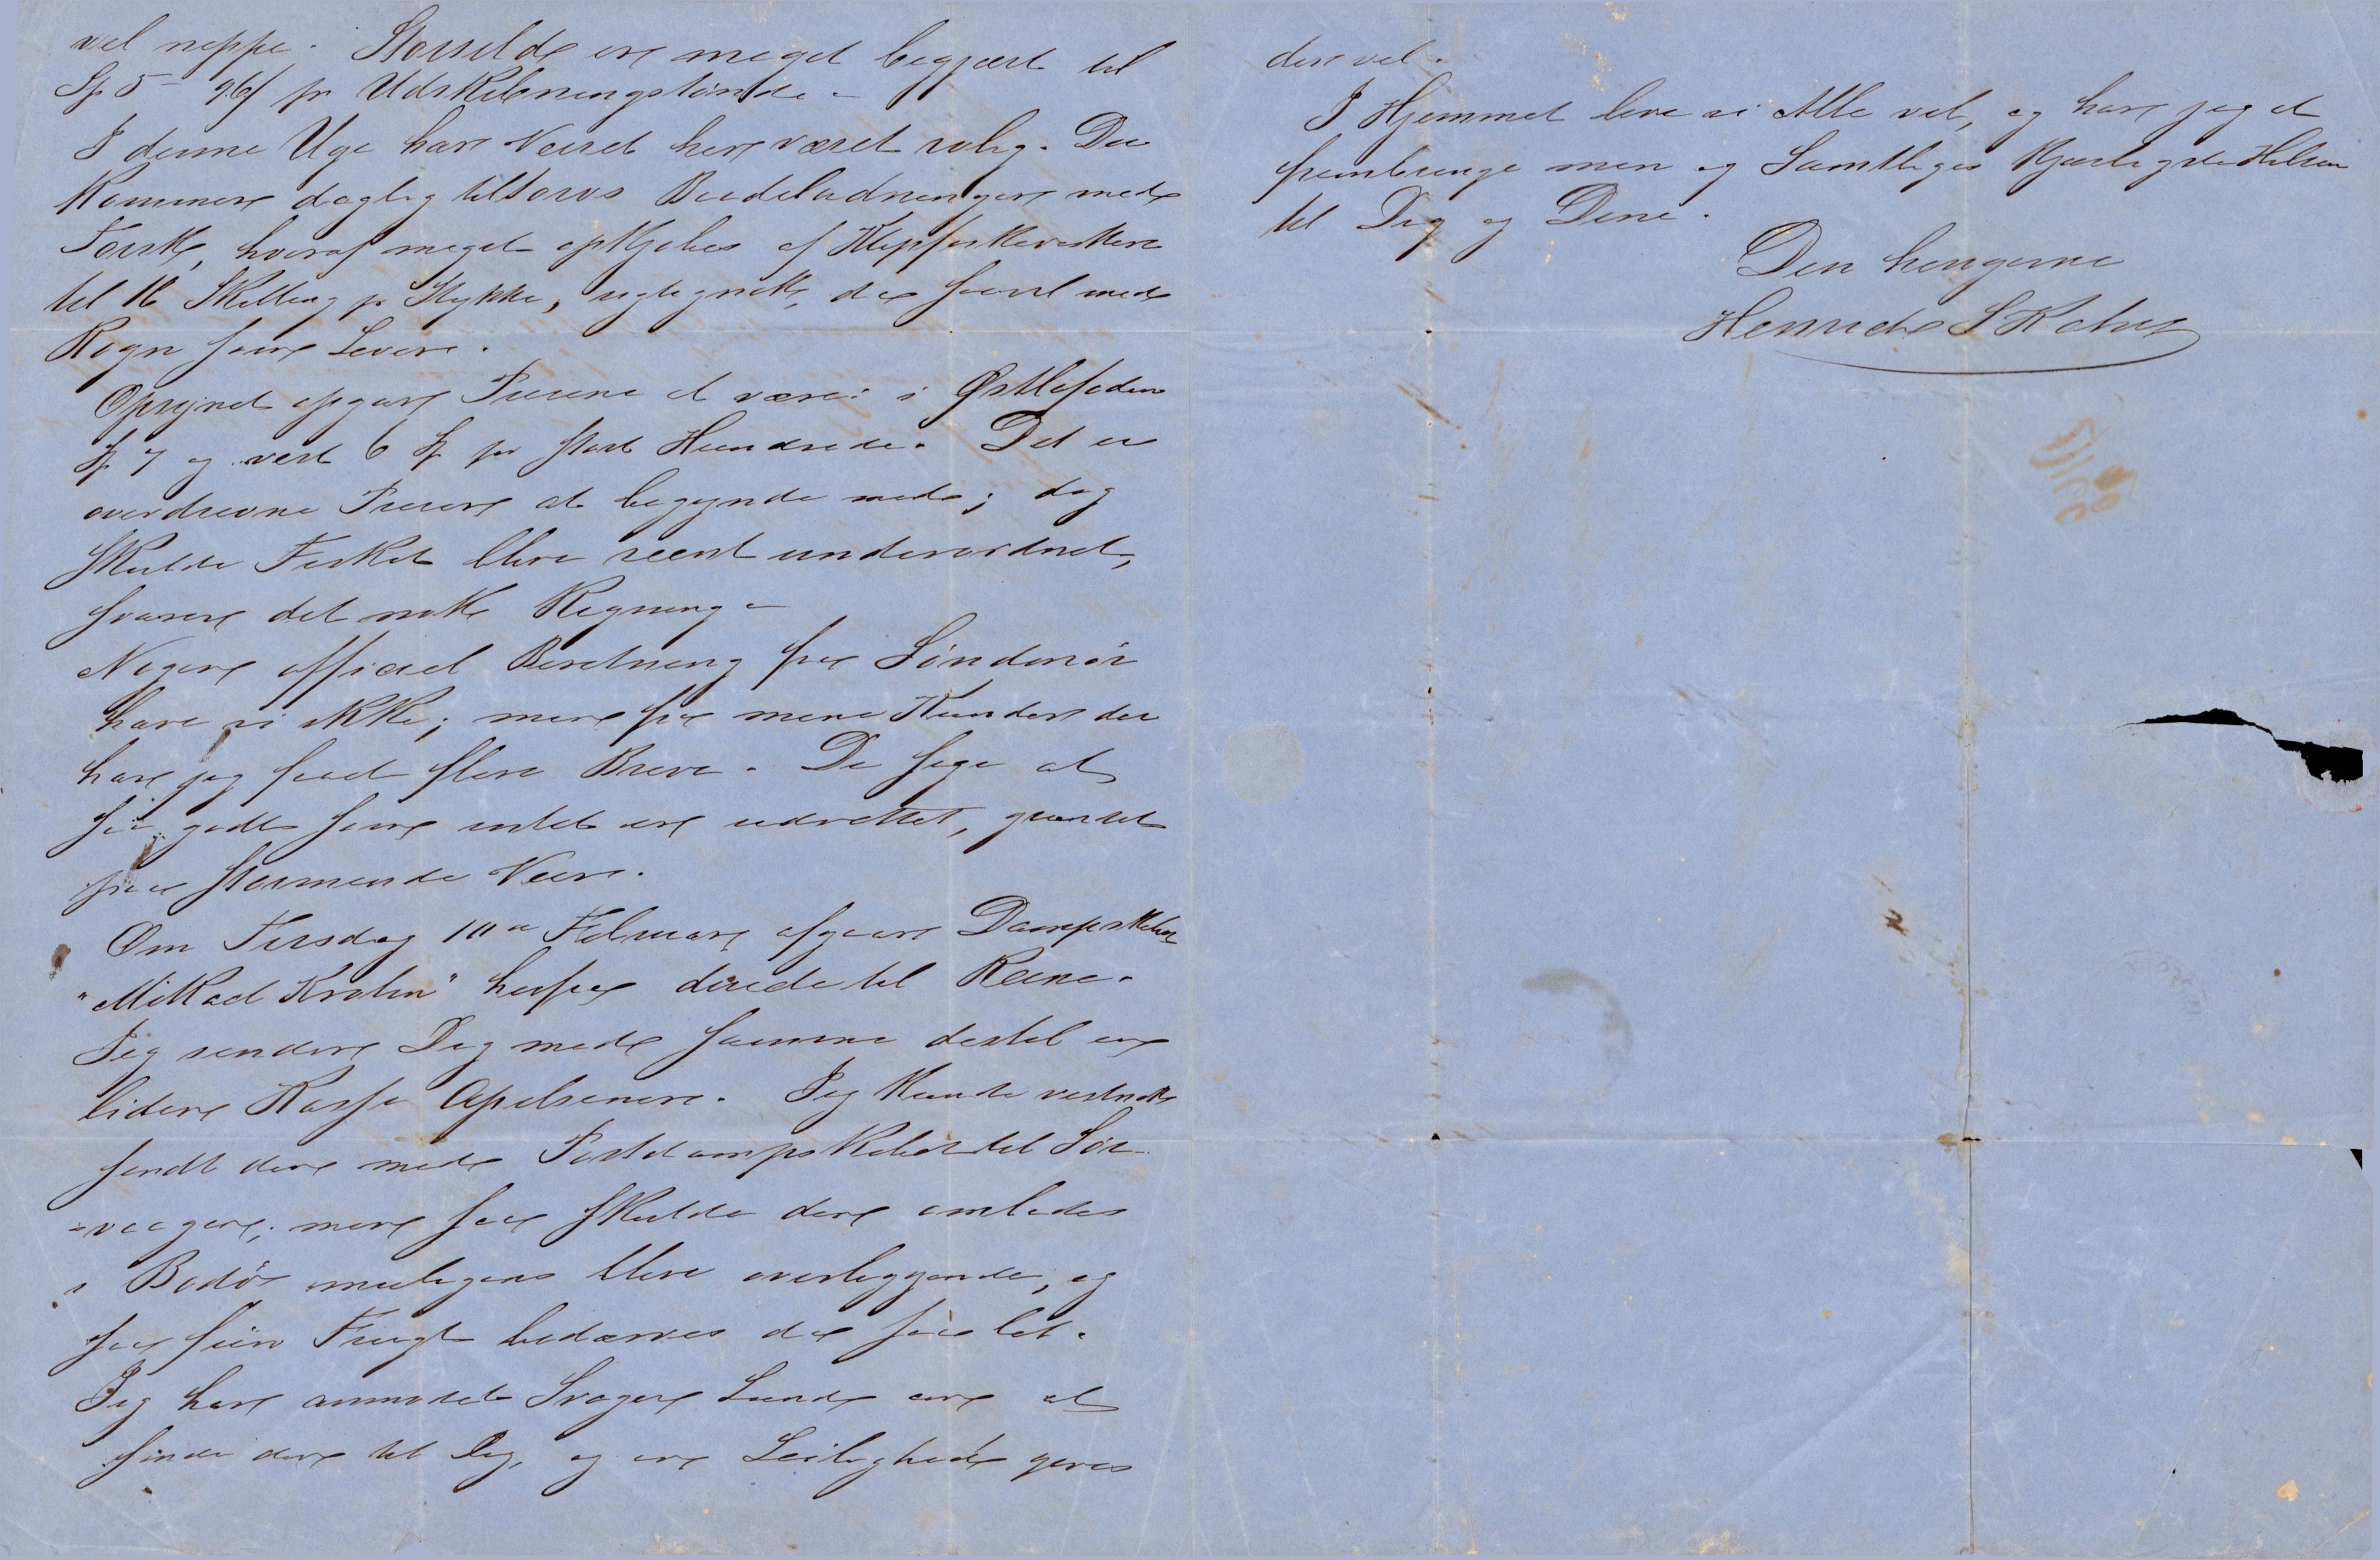 vel neppe. Storsild er meget begjært til
Sp 5 - 96/ pr Udskibningstönde -
I denne Uge har Veiret her været rolig. Der
kommer daglig tiltorvs Baadeladninger med
Torsk, hvoraf meget opkjøbes af Klipfiskvirkere
til 16 Skilling pr Stykke, rigtignok da saavel med
Rogn som Lever.
Opsynet opgav Priserne at være: i Østlofoden
Sp 7 og vest 6 Sp pr stort Hundrede. Det er
overdrevne Priser at begynde med; dog
skulde Fisket blive reent underordnet,
svarer det nok Regning -
Nogen officiel Beretning fra Söndmör
have vi ikke; men fra mine Kunder der
har jeg faaet flere Breve. De sige at
saa godt som intet er udrettet, grundet
paa stormende Veir.
Om Tirsdag 10de Februar afgaar Dampskibet
"Mikael Krohn" herfra directe til Reine.
Jeg sender Dig med samme dertil en
liden Kasse Apelsiner. Jeg kunde vistnok
sendt den med Postdampskibet til Sör-
-vaagen; men saa skulde den omlades
i Bodö muligens blive overliggende, og
saa fiin Frugt bedærves da saa let.
Jeg har anmodet Svoger Lund om at
sende den til Dig, og om Leilighed gives
dertil.
I Hjemmet leve vi Alle vel, og har jeg at
frembringe min og Samtliges kjærligste Hilsen
til Dig og Dine.
Din hengivne